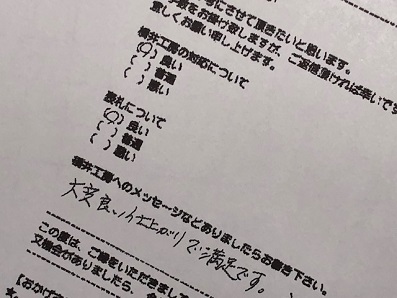 考にさせて頂きたいと思います。
手数をお掛け致しますが、ご返信頂ければ幸いです
宜しくお願い申し上げます。
福井工房の対応について
(○) 良い
( ) 普通
( ) 悪い
表札について
(○) 良い
( ) 普通
( ) 悪い
福井工房へのメッセージなどありましたらお書き下さい。
大変良い仕上がりで満足です。
この度は、ご縁をいただきまし
又機会がありましたら、
【おかげさ